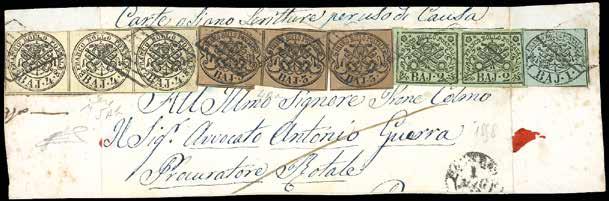 Carte o siano Scritture per uso di Causa
FRANCO BOLLO POSTALE BAJ. 4. FRANCO BOLLO POSTALE BAJ. 4. FRANCO BOLLO POSTALE BAJ. 4. BAJ. 5. BAJ. 5. BAJ. 5. BAJ. 2. BAJ. 2. BAJ. 1.
All' Illmo Signore Prone Colmo
Il Sigr Avvocato Antonio Guerra
1858
Procuratore Rotale